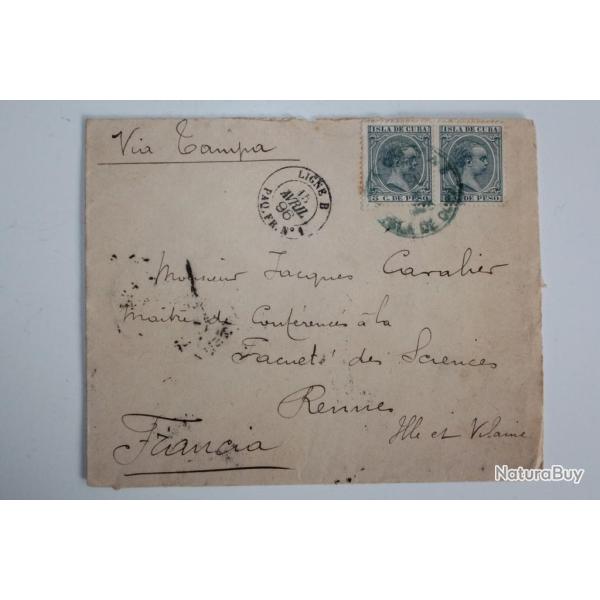 Via Tampa
ISLA DE CUBA
ISLA DE CUBA
5 C. DE PESO
DE PESO
ISLA DE
LIGNE B
15
AVRIL
96
PAQ. FR. Nº 1
Monsieur Jacques Cavalier
Maître de Conférences à la
Faculté des Sciences
Rennes
Ille et Vilaine
Francia
NaturaBuy